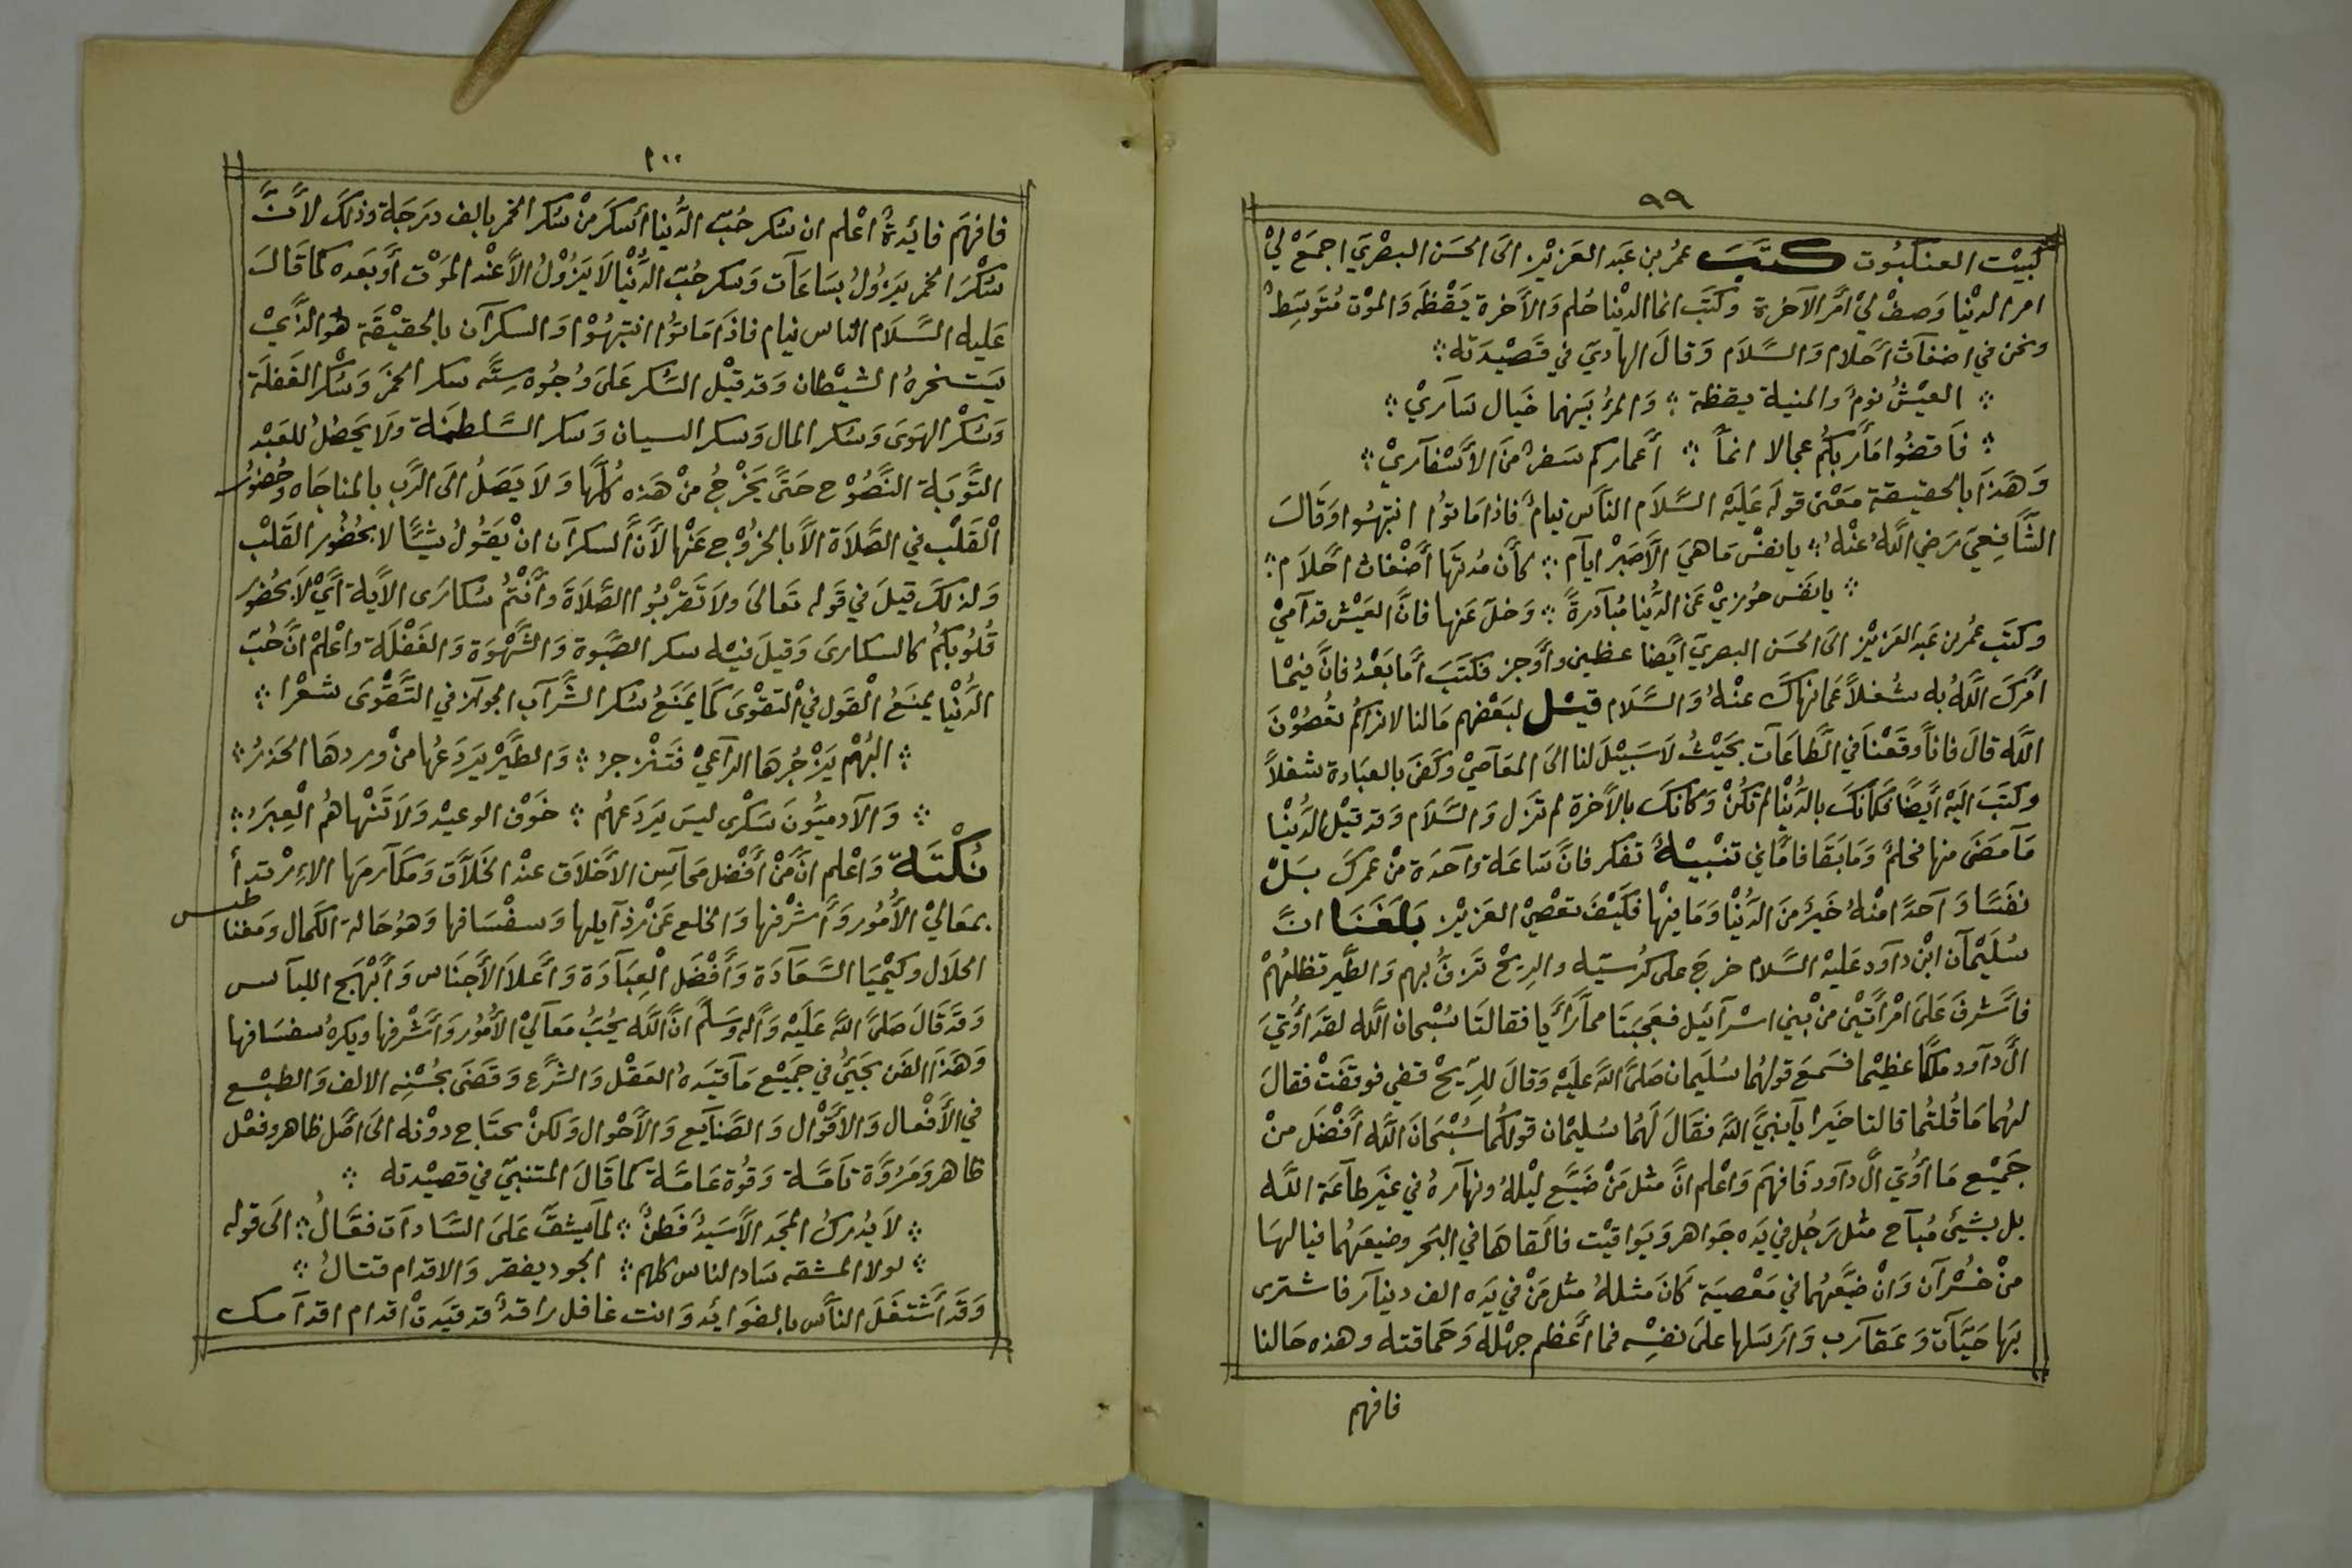 ٩٩
كبَيْت العنكبُوت كتَبَ عمُر بن عَبد العَزيْز الَى الحسَن البصْريَ اجمَعْ ليْ
امر الدنْيا وَصِفْ ليْ امَّر الآخرَة وَكتَبَ انما الدنْيا حُلم وَالأَخرة يَقْظَه وَالموْت مُتَوسَِط
ونحن في اضغَآث أحَلام وَالسَّلاَم وَقالَ الهاديَ في قصْيدَته
العيْشُ نومٌ والمنية يقظة وَالمرُ بَينهما خَيال سَآريْ
فَاقضُوا مَأَربكُم عجالا انماً أَعماركم سَفرٌ منَ الأَسْفآريْ
وَهَذَا بالحقيقة مَعْنى قولَه عَليَه السَّلاَم النَاس نيامٌ فاذا مَاتوُا انتبهُوا وَقَالَ
الشَّافِعيَ رَضي اللَّه عنْهُ يا نفسْ مَا هيَ الَّاصَبرْ ايآم كأَن مُدتَهَا أضْغاث احَّلاَم
يا نفَس جُوزيْ عَنِ الدُّنيا مُبآدرةً وَخلَ عَنها فانَّ العَيْش قدآميْ
وكتَب عمُر بن عَبد العَزيْز الَى الحسَن البصريَ ايَّضا عظني وأَوجز فكتَبَ أمَّا بَعْدُ فانَّ فيمْا
أمَركَ اللَّهُ به شُغلاً عمَا نهاكَ عنْهُ وَالسَّلَام قيْل لبَعْضهم مَالنا لا نراكمُ تعُصُوْنَ
اللَّه قالَ فاناً وقَعْنَا في الَّطاعَآت بَحيْثُ لاَسَبيْلَ لنا الَى المعَآصيْ وَكفَى بالعبَادة شغلاً
وكتَبَ اليَه ايَّضًا فكَأنكَ بالدُّنْيا لم تكُنْ وَكأنكَ بالأَخرَة لم تزَل وَالسَّلَام وَقد قيْل الدُّنيْا
مَآ مضَىَ منها فحلمٌ وَمَا بَقَا فامَاني تنَبْيْهٌ تفكر فانَّ سَاعَة وَآحدَة منْ عمركَ بَلْ
نفَسًا وَآحدًا منْهُ خَيرٌ منَ الدُّنْيا وَمَا فيْها فكَيْفَ تعْصيْ العَزيْز بَلَغَنَا انَّ
سُلَيْمآن ابْن دآود عَليْه السَّلاَم خرجَ على كُرسيّه والريْح تَزفُّ بهم وَالطَّير تظلهُمْ
فأشَرفَ عَلَى امْرأتَيْن منْ بَني اسْرآئيَل فعَجبَتَا مماَّرَأَيا فقالتَا سُبْحان اللَّه لقدَ أوُتيَ
الَّ دآود ملكًا عظيْما فسَمعَ قولهُما سُلَيمان صَلىَّ اللَّهَ عليَْه وَقالَ للرِّيحْ قفي فوقفَتْ فقالَ
لهُما مَا قُلتُما قالتا خَيرا يَآ نبيَّ اللَّه فقَالَ لَهمُا سُليْمان قولكُما سُبْحَانَ اللَّه أَفضَل منْ
جَميْع مَا أوُتي الَّ دآود فَافهَم وَاعْلم انَّ مثَل مَنْ ضَيَّع ليْلهُ ونهآرهُ في غيَر طآعَة اللَّه
بل بشيْئ مُبآح مثْل رَجُل في يَده جَواهر وَيَواقيْت فالَقاهَا في البحَر وضيعَهُما فيالهَا
منْ خُسْرآن وَانْ ضيَّعهُما في مَعْصيَة كَانَ مثلهُ مثْل مَنْ في يَده الف دينآر فاشترى
بَها حَيَّات وَعَقآرب وَارَسَلها علَى نفسْه فما أَعظم جهْلهُ وَحَماقته وهذه حَالنا
فافهم
١٠٠
فافهَم فايْدةٌ اعْلم ان سُكر حُبّ الدُّنيا أَسكرَ منْ سُكر الخمر بالف دَرجَة وذلكَ لأَنَّ
سُكْرَ الخمر يَزوُلُ بسَاعَآت وَسكر حُبّ الدُّنْيا لاَ يَزُوْلُ الاَّ عنْد الموَت أَو بَعدَه كما قَالَ
عَليه السَّلَام الناس نيام فاذَا مَاتوُا انتبهُوْا وَالسكرآن بالحقيْقَة هُو الذَّيْ
يسَتخرهُ الشيْطان وَقد قيْل السُّكر عَلىَ وُجُوه ستَّه سكر الخمرَ وَسُكْر الغَفلَة
وَسُكْر الهوَى وَسُكر المال وَسكر السيان وَسكر السَّلطنَة ولاَ يَحصُلُ للعَبْد
التَّوبَة النَّصُوْح حَتىَّ يَخرُجُ منْ هَذه كُلّها وَلاَ يَصَلُ الَى الرَّب بالمناجَاه وحُضوُر
الْقَلْب في الصَّلاَة الاَّ بالخُروْج عَنْها لأَنَّ السكرآن انْ يَقُولُ شيْئًا لا بحُضُور القَلْب
وَلذلكَ قيلَ في قَوله تعَالىَ ولاَ تَقَربُوا الصَّلاَةَ وأَنتُم سُكارَى الآيَة أيَّ لاَ بحُضوُر
قُلُوُبكُم كالسكارى وَقيلَ فيْه سكر الصَّبوة وَالشَّهْوَة وَالغَفْلَة واعْلمْ انَّ حُبّ
الدُّنْيا يمنَعُ الْقَول في التقوْىَ كمَا يَمنَعُ سُكر الشَّرآب الجوآز في التَّقْوىَ شعْرا
البُهْم يزَجُْرهَا الرآعيْ فتَنْزجرُ وَالطَّيْر يَردَعُها منْ وردهَا الحَذرُ
وَالآدميُّونَ سَكْرى ليسَ يَردَعهُم خَوْف الوعيْد وَلاَ تَنْهاهُم الْعِبَرُ
نُكْتَة وَاعْلم انَّ منْ أَفْضل محَآسن الأَخلاَق عنْد الخلآَّق وَمكَآرمهَا الاءِرْتدأ
بمَعَاليْ الأُمُور وَأَشرْفها وَالخلع عَنْ رذآيلها وَسفْسَافها وَهُو حَالة الكمَال وَمغنا
طيس
الحلاَل وكيْميَا السَّعَآدَة وَأَفْضَل الْعِبَآدَة وَأَعلاَ الأَجنَاس وَأَبْهَج اللبآس
وَقدَ قَالَ صَلىَّ اللَّهَ عَليَْه وَأَله وَسَلمَّ انَّ اللَّه يُحبُّ مَعآليْ الأُمُور وَأَشَرْفها ويكرهُ سفسَافها
وَهَذَا الفَن يَجيُ في جَميْع مَآ قيَدهُ العَقْل وَالشَرْع وَقضَى بحُسْنه الالف وَالطبْع
في الأَفْعال وَالأَقْوْال وَالصَّنآيع وَالأَحْوال وَلكنْ يحتَاج دوْنه الىَ اصَّل ظاهر وفعْل
ظاهر وَمَرُوَّة تامَّة وَقوُة عَامَّة كما قَالَ المتنبيّ في قصيْدته
لاَ يُدركُ المجَد الاَّ سَيدُ فَطنٌ لمآ يشقَّ عَلىَ السَّادآت فعَّالُ الىَ قوله
لولا المشقه سَاد الناس كلهم الجود يفقر وَالاقدام قتالُ
وَقدَ أَشتغَلَ النَّاس بالفوَايْد وَانت غافل راقدٌ قد قيَدتْ اقدام اقدآمك